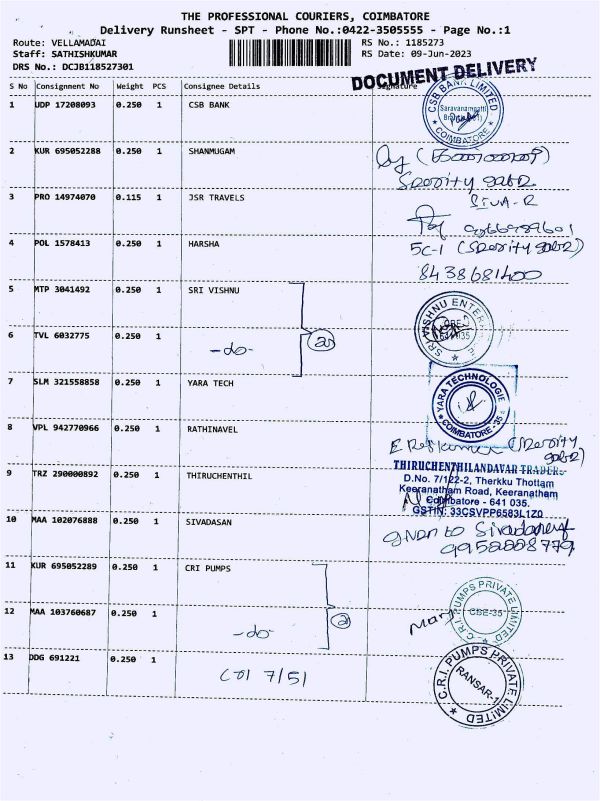 THE PROFESSIONAL COURIERS, COIMBATORE
Delivery Runsheet - SPT - Phone No.:0422-3505555 - Page No.:1
Route: VELLAMADAI
RS No.: 1185273
Staff: SATHISHKUMAR
RS Date: 09-Jun-2023
DRS No.: DCJB118527301
DOCUMENT DELIVERY
S No Consignment No Weight PCS Consignee Details Signature
1 UDP 17208093 0.250 1 CSB BANK
CSB BANK LIMITED
Saravanampatti
COIMBATORE
2 KUR 695052288 0.250 1 SHANMUGAM
3 PRO 14974070 0.115 1 JSR TRAVELS
SIVA-R
4 POL 1578413 0.250 1 HARSHA
5C-1
8438681400
5 MTP 3041492 0.250 1 SRI VISHNU
SRI VISHNU
6 TVL 6032775 0.250 1 -do-
7 SLM 321558858 0.250 1 YARA TECH
YARA TECHNOLOGIE
COIMBATORE - 35
8 VPL 942770966 0.250 1 RATHINAVEL
9 TRZ 290000892 0.250 1 THIRUCHENTHIL
THIRUCHENTHILANDAVAR TRADERS
D.No. 7/122-2, Therkku Thottam
Keeranatham Road, Keeranatham
Coimbatore - 641 035.
GSTIN: 33CSVPP6583L1Z0
10 MAA 102076888 0.250 1 SIVADASAN
given to
11 KUR 695052289 0.250 1 CRI PUMPS
C.R.I. PUMPS PRIVATE LIMITED
CBE-35
12 MAA 103760687 0.250 1 -do-
13 DDG 691221 0.250 1
C.R.I. PUMPS PRIVATE LIMITED